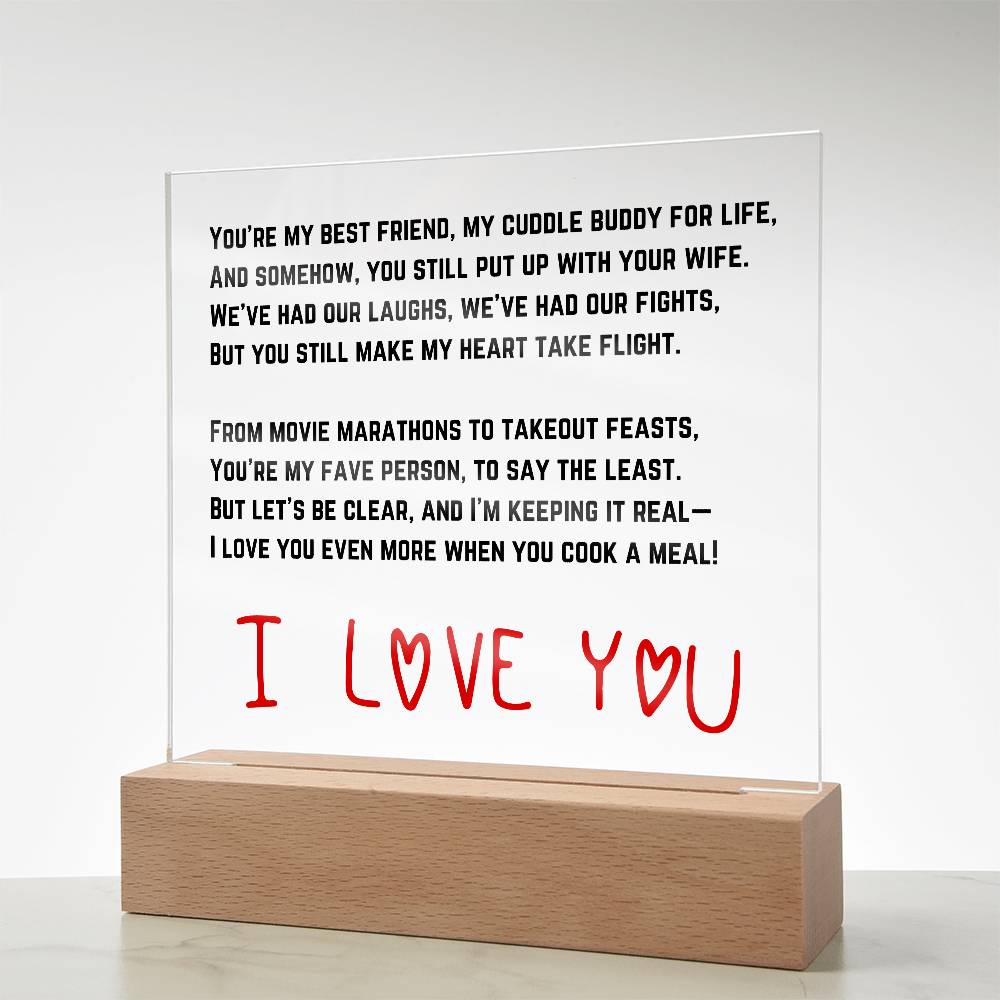 You're my best friend, my cuddle buddy for life,
And somehow, you still put up with your wife.
We've had our laughs, we've had our fights,
But you still make my heart take flight.
From movie marathons to takeout feasts,
You're my fave person, to say the least.
But let's be clear, and I'm keeping it real—
I love you even more when you cook a meal!
I LOVE YOU